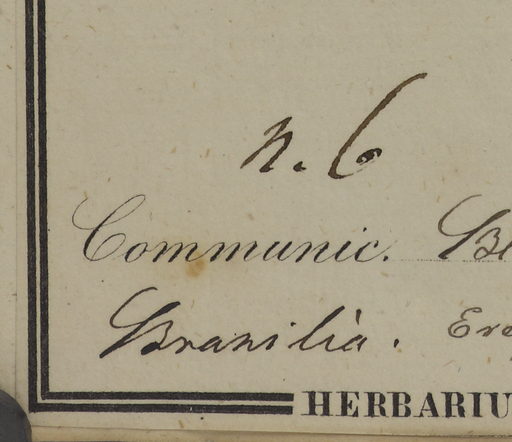 n. 6
Communic.
Brazilia.
HERBARIU